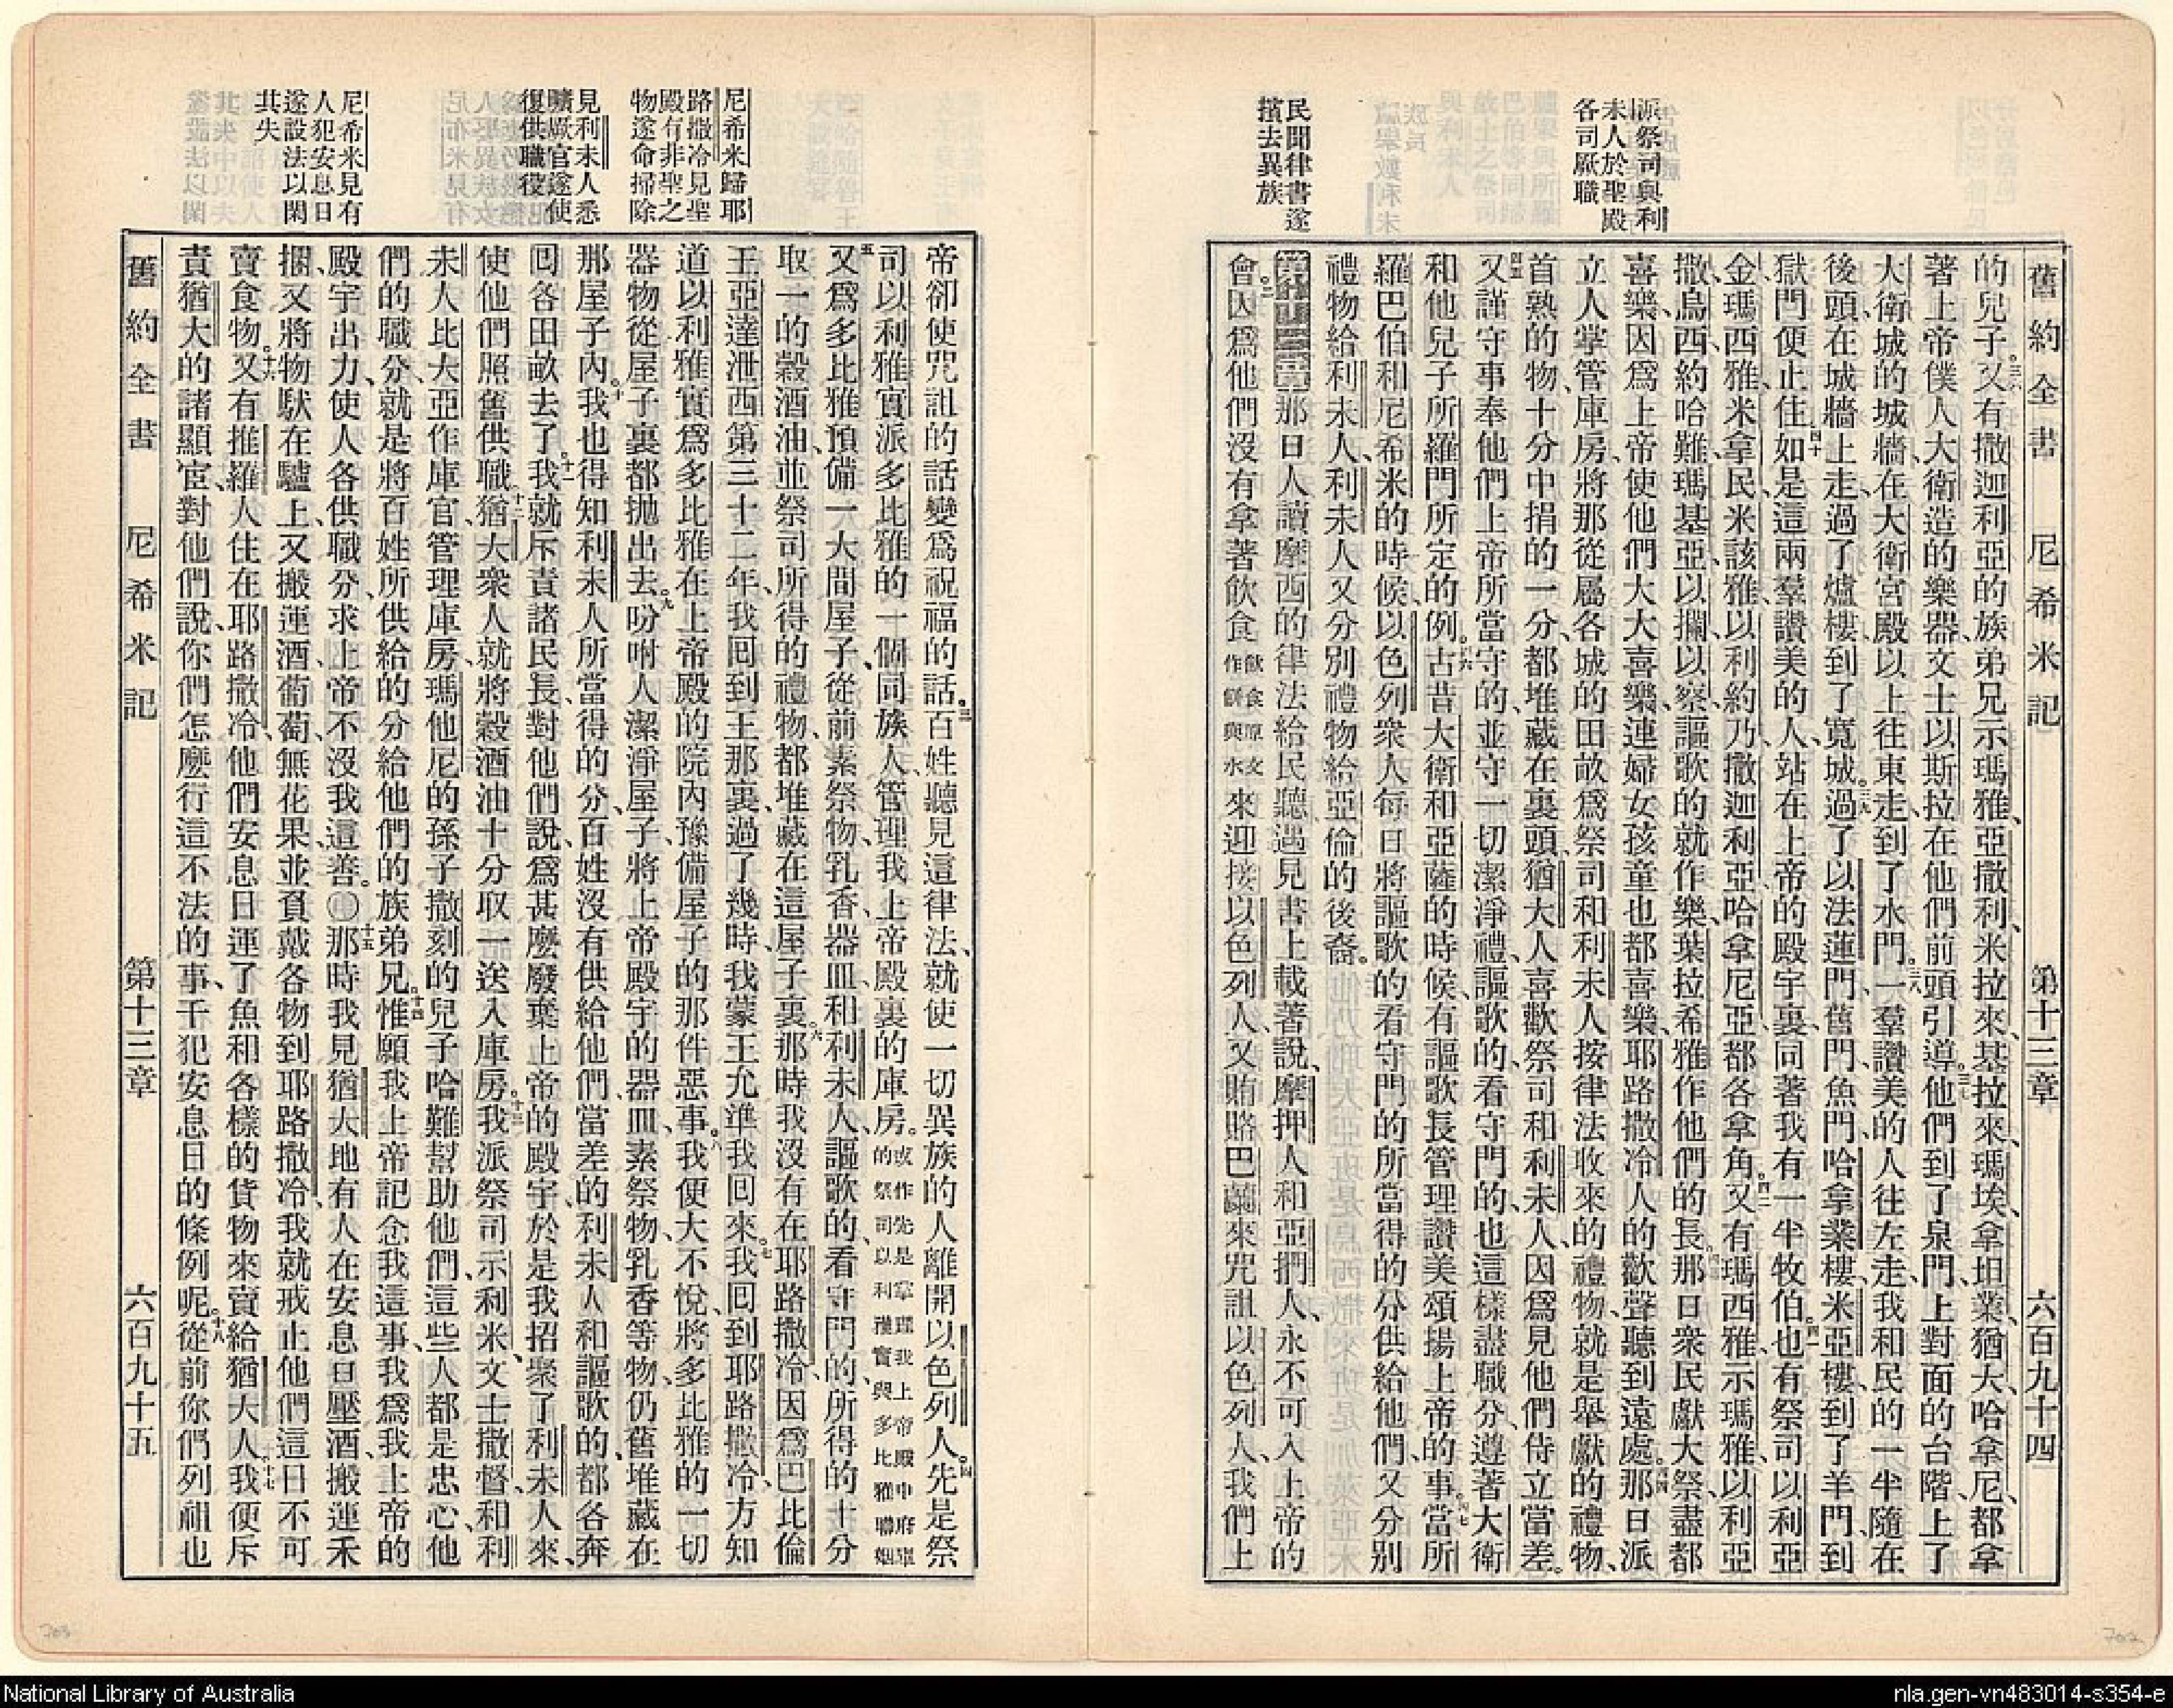 舊約全書 尼希米記 第十三章 六百九十四
派祭司與利
未人於聖殿
各司厥職
民聞律書遂
擯去異族
的兒子。又有撒迦利亞的族弟兄示瑪雅、亞撒利、米拉來、基拉來、瑪埃、拿坦業、猶大、哈拿尼、都拿
著上帝僕人大衛造的樂器、文士以斯拉在他們前頭引導。三七他們到了泉門、上對面的台階、上了
大衛城的城牆、在大衛宮殿以上往東走到了水門。三八一羣讚美的人往左走、我和民的一半隨在
後頭、在城牆上走過了爐樓、到了寬城。三九過了以法蓮門、舊門、魚門、哈拿業樓、米亞樓、到了羊門、到
獄門便止住。四十如是這兩羣讚美的人、站在上帝的殿宇裏、同著我有一半牧伯。四一也有祭司以利亞
金、瑪西雅、米拿民、米該雅、以利約乃、撒迦利亞、哈拿尼亞、都各拿角。四二又有瑪西雅、示瑪雅、以利亞
撒、烏西、約哈難、瑪基亞、以攔、以察、謳歌的就作樂、葉拉希雅作他們的長。四三那日衆民獻大祭、盡都
喜樂、因爲上帝使他們大大喜樂、連婦女孩童也都喜樂、耶路撒冷人的歡聲聽到遠處。四四那日派
立人掌管庫房、將那從屬各城的田畝、爲祭司和利未人按律法收來的禮物、就是舉獻的禮物、
首熟的物、十分中捐的一分、都堆藏在裏頭、猶大人喜歡祭司和利未人、因爲見他們侍立當差。
四五又謹守事奉他們上帝所當守的、並守一切潔淨禮、謳歌的、看守門的、也這樣盡職分、遵著大衛
和他兒子所羅門所定的例。四六古昔大衛和亞薩的時候、有謳歌長管理讚美頌揚上帝的事。四七當所
羅巴伯和尼希米的時候、以色列衆人每日將謳歌的看守門的所當得的分供給他們、又分別
禮物給利未人、利未人又分別禮物給亞倫的後裔。
第十三章那日人讀摩西的律法給民聽、遇見書上載著說、摩押人和亞捫人、永不可入上帝的
會。二因爲他們沒有拿著飲食飲食原文作餅與水來迎接以色列人、又賄賂巴蘭來咒詛以色列人、我們上
尼希米歸耶
路撒冷見聖
殿有非聖之
物遂命掃除
見利未人悉
曠厥官遂使
復供職役
尼希米見有
人犯安息日
遂設法以閑
其失
帝卻使咒詛的話變爲祝福的話。三百姓聽見這律法、就使一切異族的人離開以色列人。四先是祭
司以利雅實派多比雅的一個同族人、管理我上帝殿裏的庫房。或作先是掌理我上帝殿中府庫的祭司以利雅實與多比雅聯姻
五又爲多比雅預備一大間屋子、從前素祭物、乳香、器皿、和利未人、謳歌的、看守門的、所得的十分
取一的穀酒油、並祭司所得的禮物、都堆藏在這屋子裏。六那時我沒有在耶路撒冷、因爲巴比倫
王亞達泄西第三十二年、我回到王那裏、過了幾時、我蒙王允準我回來。七我回到耶路撒冷、方知
道以利雅實爲多比雅在上帝殿的院內、豫備屋子的那件惡事。八我便大不悅、將多比雅的一切
器物、從屋子裏都拋出去。九吩咐人潔淨屋子、將上帝殿宇的器皿、素祭物、乳香等物、仍舊堆藏在
那屋子內。十我也得知利未人所當得的分、百姓沒有供給他們、當差的利未人和謳歌的、都各奔
回各田畝去了。十一我就斥責諸民長、對他們說、爲甚麼廢棄上帝的殿宇、於是我招聚了利未人來、
使他們照舊供職。十二猶大衆人、就將穀酒油十分取一、送入庫房。十三我派祭司示利米、文士撒督、和利
未人比大亞作庫官、管理庫房、瑪他尼的孫子撒刻的兒子哈難幫助他們、這些人都是忠心、他
們的職分、就是將百姓所供給的分給他們的族弟兄。十四惟願我上帝記念我這事、我爲我上帝的
殿宇出力、使人各供職分、求上帝不沒我這善。〇十五那時我見猶大地有人在安息日壓酒、搬運禾
捆、又將物馱在驢上、又搬運酒、葡萄、無花果、並負戴各物到耶路撒冷、我就戒止他們這日不可
賣食物。十六又有推羅人住在耶路撒冷、他們安息日運了魚和各樣的貨物來賣給猶大人。十七我便斥
責猶大的諸顯宦、對他們說、你們怎麼行這不法的事、干犯安息日的條例呢。十八從前你們列祖也
舊約全書 尼希米記 第十三章 六百九十五
703
702
National Library of Australia
nla.gen-vn483014-s354-e